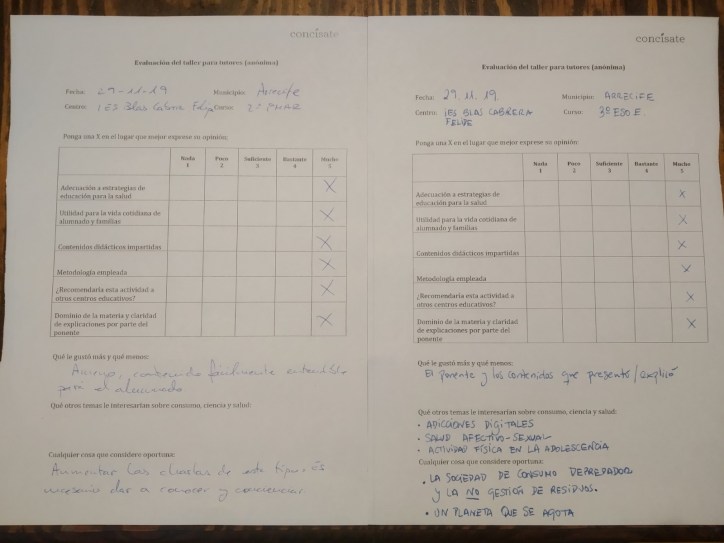 concisate
Evaluación del taller para tutores (anónima)
Fecha: 29-11-19 Municipio: Arrecife
Centro: IES Blas Cabrera Felipe Curso: 2º
Ponga una X en el lugar que mejor exprese su opinión:
Nada 1 Poco 2 Suficiente 3 Bastante 4 Mucho 5
Adecuación a estrategias de
educación para la salud X
Utilidad para la vida cotidiana de
alumnado y familias X
Contenidos didácticos impartidas X
Metodología empleada X
¿Recomendaría esta actividad a
otros centros educativos? X
Dominio de la materia y claridad
de explicaciones por parte del
ponente X
Qué le gustó más y qué menos:
Ameno, contenido fácilmente entendible
para el alumnado
Qué otros temas le interesarían sobre consumo, ciencia y salud:
Cualquier cosa que considere oportuna:
Aumentar las charlas de este tipo. Es
necesario dar a conocer y concienciar
concisate
Evaluación del taller para tutores (anónima)
Fecha: 29.11.19. Municipio: ARRECIFE
Centro: IES BLAS CABRERA Curso: 3º ESO E
FELIPE
Ponga una X en el lugar que mejor exprese su opinión
Nada 1 Poco 2 Suficiente 3 Bastante 4 Mucho 5
Adecuación a estrategias de
educación para la salud X
Utilidad para la vida cotidiana de
alumnado y familias X
Contenidos didácticos impartidas X
Metodología empleada X
¿Recomendaría esta actividad a
otros centros educativos? X
Dominio de la materia y claridad
de explicaciones por parte del
ponente X
Qué le gustó más y qué menos:
El ponente y los contenidos que presentó/explicó
Qué otros temas le interesarían sobre consumo, ciencia y salud:
• ADICCIONES DIGITALES
• SALUD AFECTIVO-SEXUAL
• ACTIVIDAD FÍSICA EN LA ADOLESCENCIA
Cualquier cosa que considere oportuna:
• LA SOCIEDAD DE CONSUMO DEPREDADOR
Y LA NO GESTIÓN DE RESIDUOS.
• UN PLANETA QUE SE AGOTA